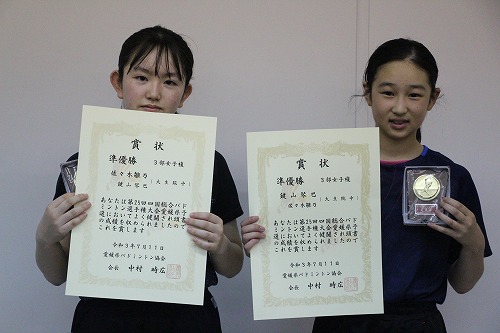 賞状
準優勝 3部女子複
佐々木雛乃
鍵山琴巴 (久生院中)
あなたは第25回四国総合バド
ミントン選手権大会愛媛県予
選において よく健闘され頭書
の成績を収められましたので
これを賞します
令和3年7月11日
愛媛県バドミントン協会
会長 中村時広
賞状
準優勝 3部女子複
鍵山琴巴 (久生院中)
佐々木雛乃
あなたは第25回四国総合バド
ミントン選手権大会愛媛県予
選において よく健闘され頭書
の成績を収められましたので
これを賞します
令和3年7月11日
愛媛県バドミントン協会
会長 中村時広